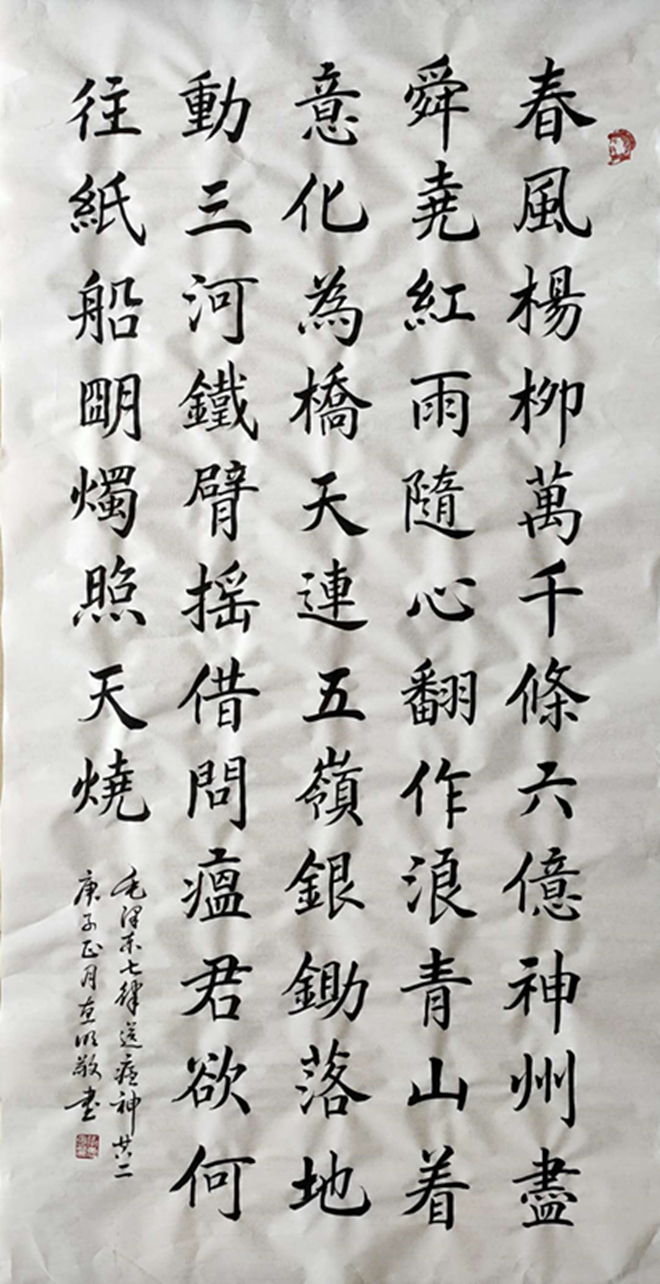 春風楊柳萬千條六億神州盡
舜堯紅雨隨心翻作浪青山着
意化為橋天連五嶺銀鋤落地
動三河鐵臂摇借問瘟君欲何
往紙船明燭照天燒
毛澤東七律送瘟神其二
庚子正月直明敬書